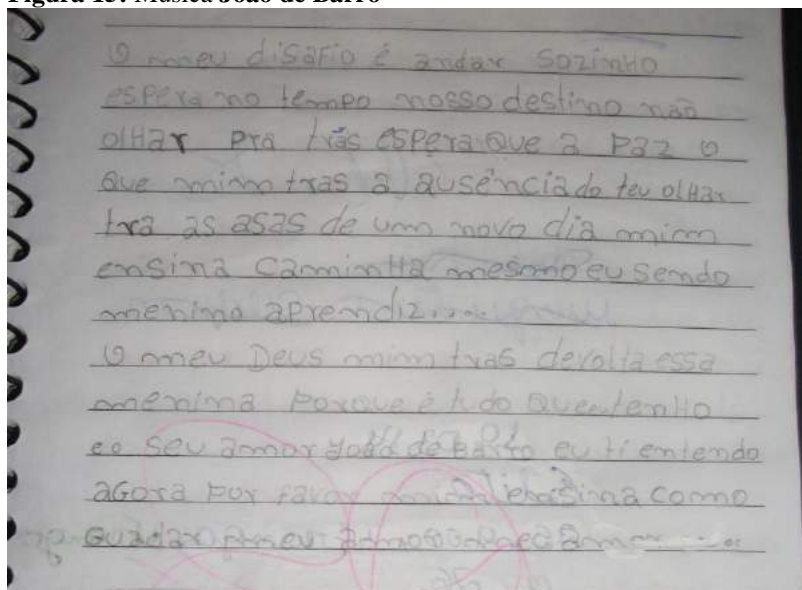 Figura 13: Música João de Barro
O meu disafio é andar sozinho
espera no tempo nosso destino não
olhar pra trás espera que a paz o
que mim tras a ausência do teu olhar
tra as asas de um novo dia mim
ensina caminha mesmo eu sendo
menino aprendiz....
O meu Deus mim tras devolta essa
menina porque é tudo que eu tenho
e o seu amor João de Barro eu ti entendo
agora por favor mim ensina como
guadar meu amor